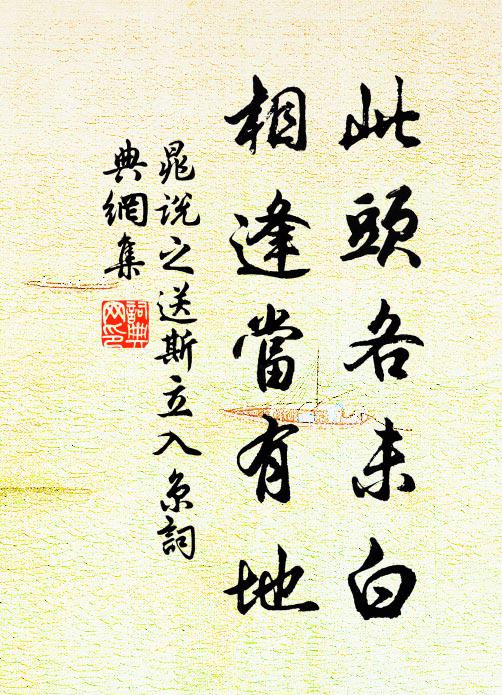 此頭各未白
相逢當有地
晁说之送斯立入京詞
典網集
詞典
网印